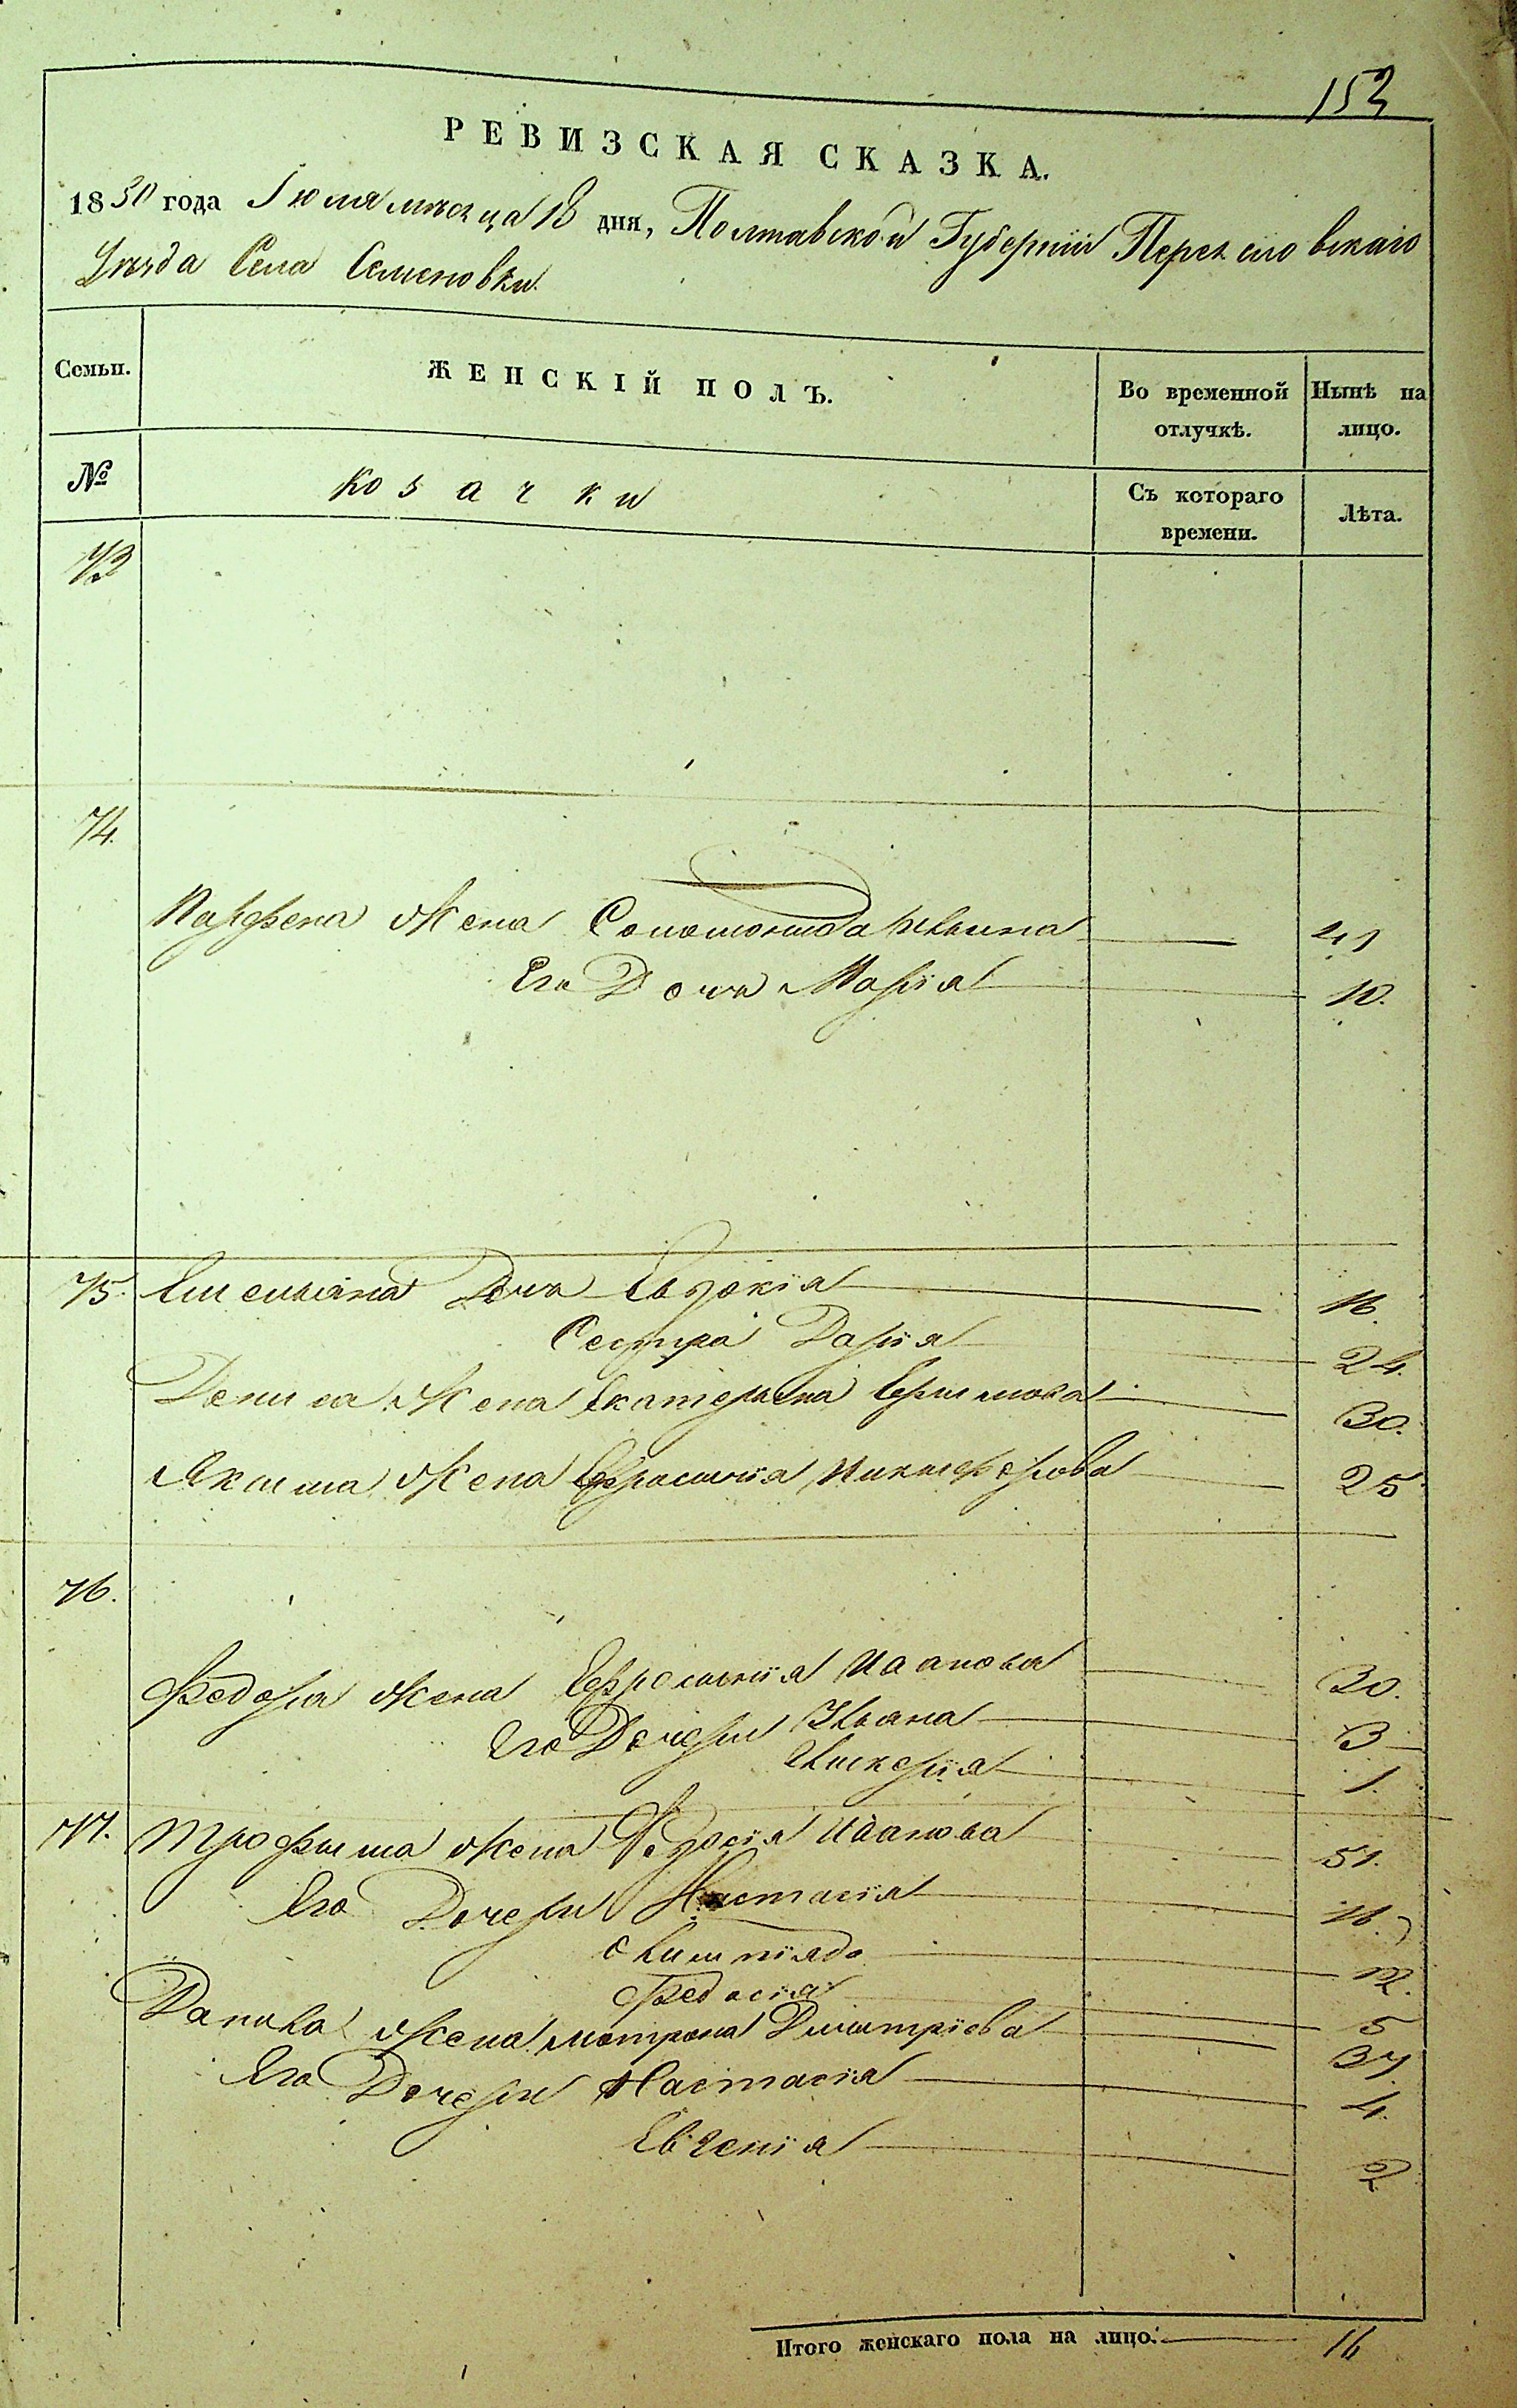 153
РЕВИЗСКАЯ СКАЗКА.
1850 года Іюля месяца 18 дня, Полтавской Губерніи Переяславскаго
Уезда Села Семеновки
Семьи.
ЖЕНСКІЙ ПОЛЪ.
Во временной отлучкѣ.
Нынѣ на лицо.
№
козачки
Съ котораго времени.
Лѣта.
73
74.
Парфена Жена Соломонида 41
Его Дочь Марія 10.
75. Емельяна Дочь Евдокія 16.
Сестра Дарія 24.
Дениса Жена Екатерина Ефимова 30.
Якима Жена Ефросинія Никифорова 25
76.
Федора жена Ефросинія Иванова 30.
Его Дочери Ульяна 3
Гликерія 1.
77. Трофима жена Федосія Иванова 51.
Его Дочери Настасія 16.
Олимпіяда 12.
Федосія 5
Данила Жена Мотрона Дмитріева 37
Его Дочери Настасія 4.
Евгенія 2
Итого женскаго пола на лицо. 16